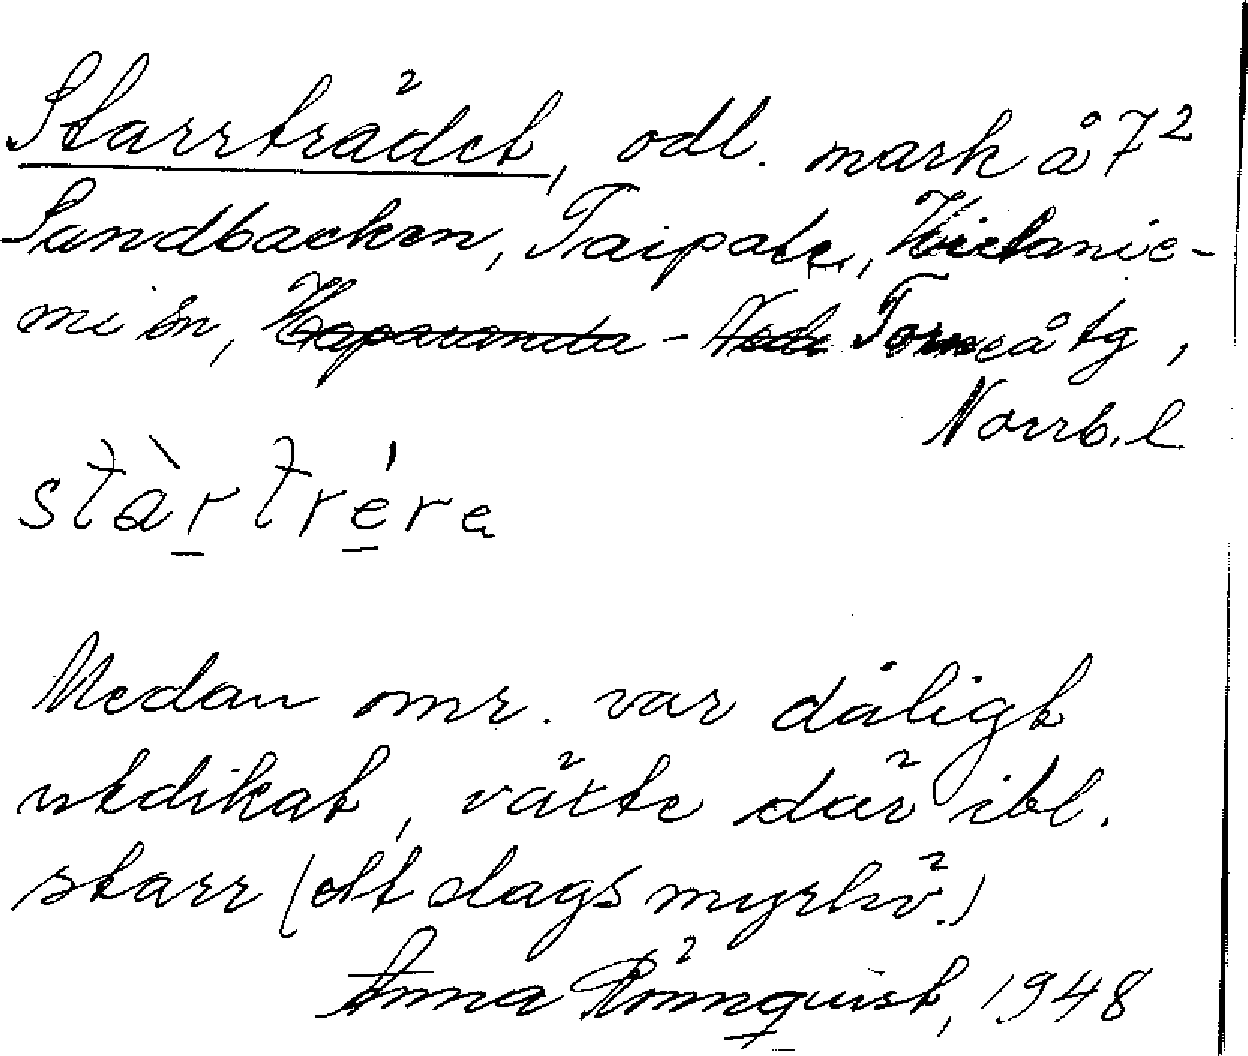 Starrträdet, odl. mark å 7²
Sandbacken, Taipale, Hietanie-
mi sn, Haparanda - Torneå tg,
Norrb. l
stàrtrére
Medan omr. var dåligt
utdikat, växte där ibl.
starr (ett slags myrhö.)
Anna Rönnquist, 1948